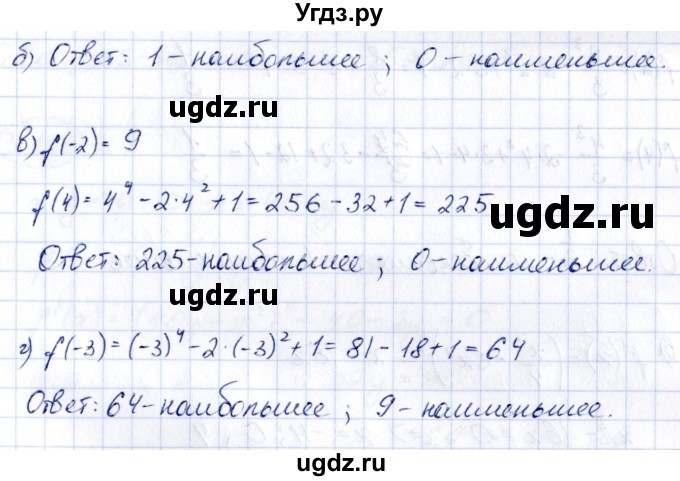 Угдз.ру
б) Ответ: 1 – наибольшее ; 0 – наименьшее.
ugdz.ru
в) f(-2) = 9
ugdz.ru
f(4) = 4⁴ – 2·4² + 1 = 256 – 32 + 1 = 225
ugdz.ru
Ответ: 225 – наибольшее ; 0 – наименьшее.
ugdz.ru
г) f(-3) = (-3)⁴ – 2·(-3)² + 1 = 81 – 18 + 1 = 64
ugdz.ru
Ответ: 64 – наибольшее ; 9 – наименьшее.
ugdz.ru